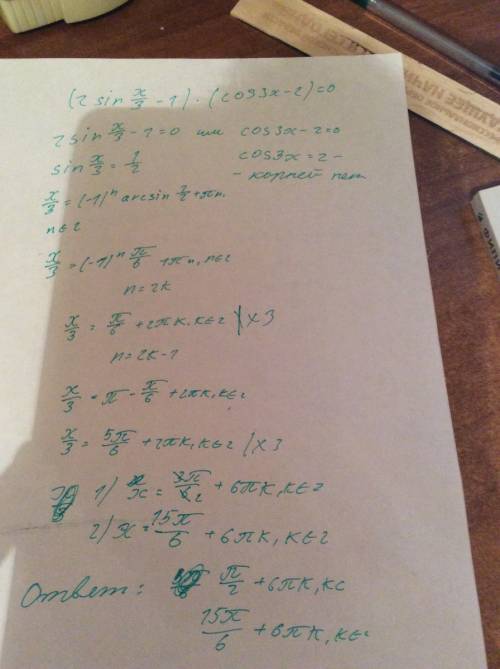 (2 sin x/3 - 1) · (cos3x - 2) = 0
2 sin x/3 - 1 = 0 или cos3x - 2 = 0
sin x/3 = 1/2 cos3x = 2 -
- корней нет
x/3 = (-1)^n arcsin 1/2 + πn,
n∈Z
x/3 = (-1)^n π/6 + πn, n∈Z
n = 2k
x/3 = π/6 + 2πk, k∈Z | × 3
n = 2k - 1
x/3 = π - π/6 + 2πk, k∈Z
x/3 = 5π/6 + 2πk, k∈Z | × 3
1) x = 3π/6 2 + 6πk, k∈Z
2) x = 15π/6 + 6πk, k∈Z
Ответ: π/2 + 6πk, k∈
15π/6 + 6πk, k∈Z